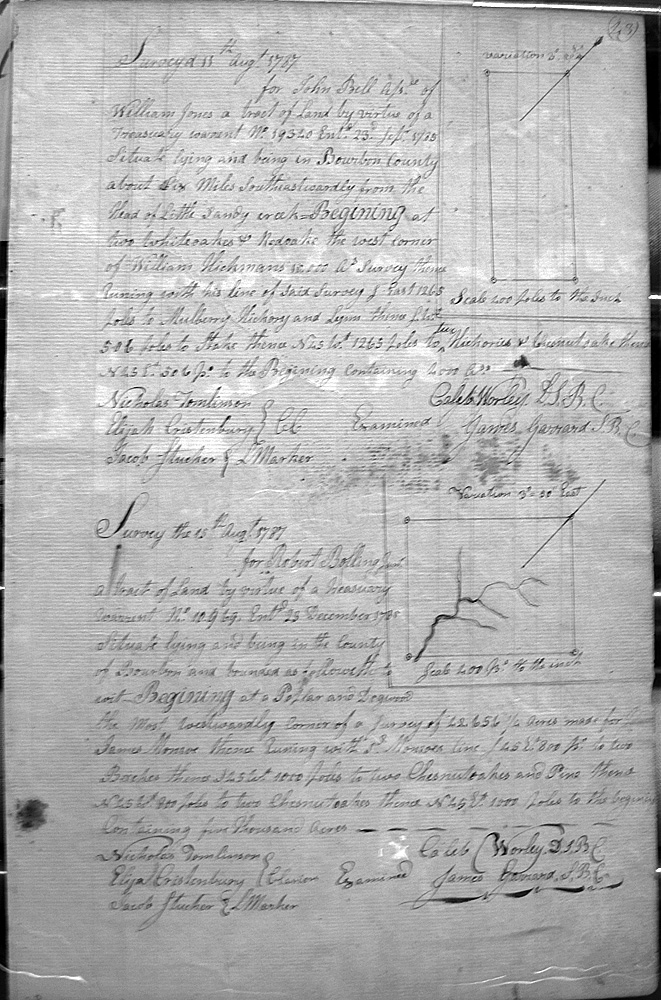 (43)
variation 3°
Survey'd 15th Augt 1787
for John Bell Asse of
William Jones a tract of Land by virtue of a
Treasuary warrent No 19320 Entd 23d
Situate lying and being in Bourbon County
about Six Miles Southeastwardly from the
Head of Little Sandy creek = Begining at
two Whiteoakes & Redoake the west corner
of William Hickmans As Survey thence
Runing with his line of said Survey S East 1265
Scale 200 poles to the Inch
poles to Mulberry Hickory and Lynn thence
506 poles to Stake thence N45 Wt 1265 poles to four Hickories & Chesnutoake thence
N45 Et 506 ps to the Begining Containing 4000 Acs
Nicholas Tomlinson
Caleb Worley D.S.B.C
Elijah Cristenbury } CC
Examined James Garrard S.B.C
Jacob Slucher } & Marker
Variation 3° = 30' East
Survey the 15th Augt 1787
for Robert Bolling Junr
a tract of Land by virtue of a Treasuary
warrent No 10.969. Entd 25 December
Situate lying and being in the County
of Bourbon and bounded as followeth to
Scale 200 ps to the inch
wit = Begining at a Poplar and Dogwood
the Most Westwardly Corner of a Survey of Acres made for
James Monroe thence Runing with Sd Monroes line S 45 Et 800 ps to two
Beeches thence S45 Wt 1000 poles to two Chesnutoakes and Pine thence
N45 Wt 800 poles to two Chesnutoakes thence N45 Et 1000 poles to the begining
Containing five thousand Acres
Nicholas Tomlinson
Caleb Worley D.S.B.C
Elija Cristenbury
Examined James Garrard, S.B.C
Jacob Slucher & Marker